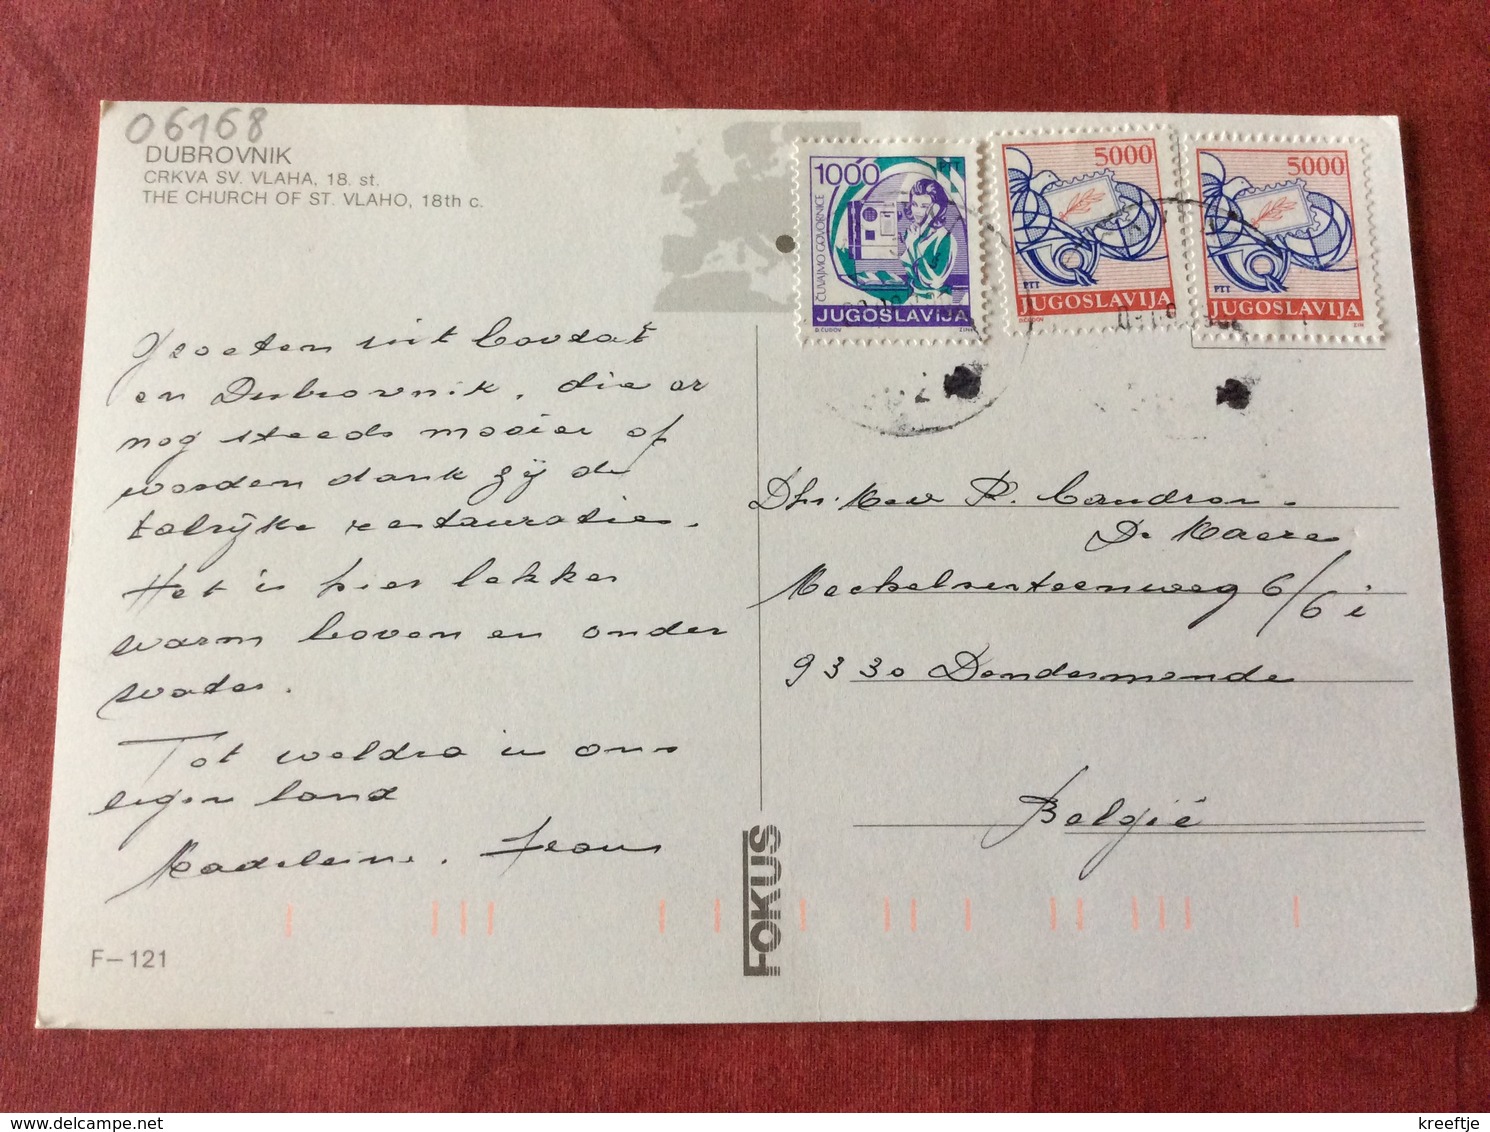 06168
DUBROVNIK
CRKVA SV. VLAHA, 18. st.
THE CHURCH OF ST. VLAHO, 18th c.
Groeten uit Cavtat
en Dubrovnik, die er
nog steeds mooier op
worden dank zij de
talrijke restauraties.
Het is hier lekker
warm boven en onder
water.
Tot weldra in ons
eigen land
Madeleine. Jean
F-121
FOKUS
1000
PTT
ČUVAJMO GOVORNICE
JUGOSLAVIJA
D.ČUDOV
ZIN
5000
PTT
JUGOSLAVIJA
D.ČUDOV
5000
PTT
JUGOSLAVIJA
D.ČUDOV
ZIN
Dhr. Mew R. Caudron -
De Maere
Mechelsesteenweg 6/6 i
9330 Dendermonde
België
© delcampe.net
kreeftje